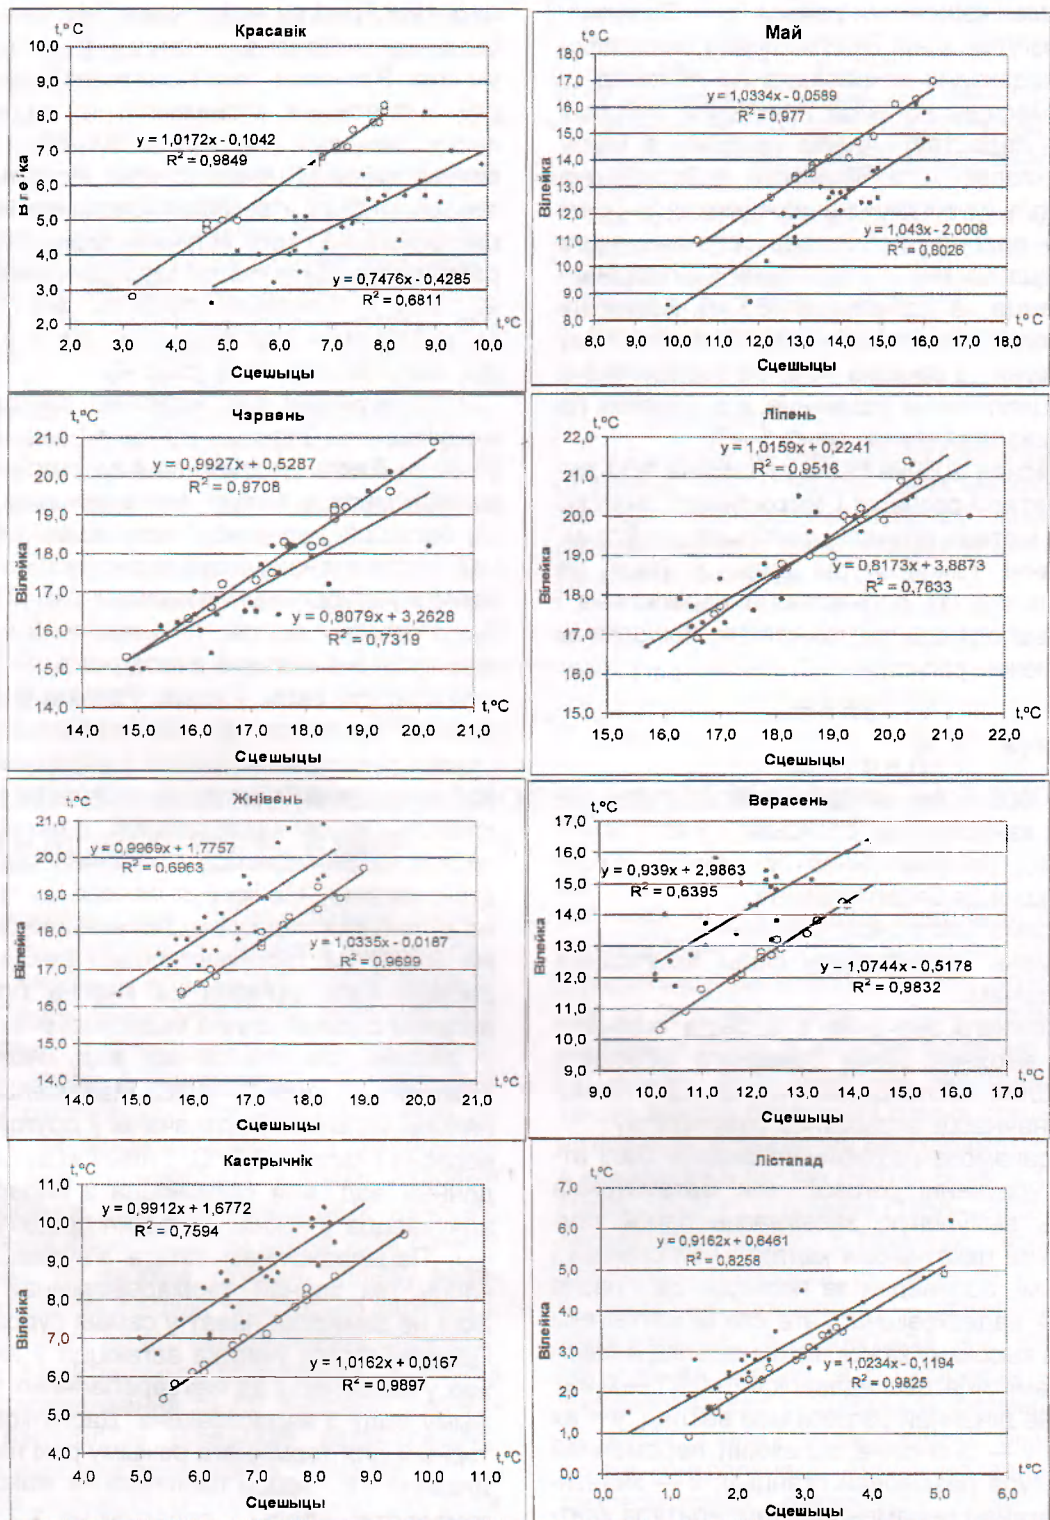 t,°C
Красавік
10,0
9,0
8,0
7,0
6,0
5,0
4,0
3,0
2,0
y = 1,0172x - 0,1042
R² = 0,9849
y = 0,7476x - 0,4285
R² = 0,6811
t,°C
2,0 3,0 4,0 5,0 6,0 7,0 8,0 9,0 10,0
Сцешыцы
t,°C
Май
18,0
17,0
16,0
15,0
14,0
13,0
12,0
11,0
10,0
9,0
8,0
Вілейка
y = 1,0334x - 0,0589
R² = 0,977
y = 1,043x - 2,0008
R² = 0,8026
t,°C
8,0 9,0 10,0 11,0 12,0 13,0 14,0 15,0 16,0 17,0 18,0
Сцешыцы
t,°C
Чэрвень
21,0
20,0
19,0
18,0
17,0
16,0
15,0
14,0
Вілейка
y = 0,9927x + 0,5287
R² = 0,9708
y = 0,8079x + 3,2628
R² = 0,7319
t,°C
14,0 15,0 16,0 17,0 18,0 19,0 20,0 21,0
Сцешыцы
t,°C
Ліпень
22,0
21,0
20,0
19,0
18,0
17,0
15,0
Вілейка
y = 1,0159x + 0,2241
R² = 0,9516
y = 0,8173x + 3,8873
R² = 0,7833
t,°C
15,0 16,0 17,0 18,0 19,0 20,0 21,0 22,0
Сцешыцы
t,°C
Жнівень
21,0
20,0
19,0
18,0
17,0
16,0
15,0
14,0
Вілейка
y = 0,9969x + 1,7757
R² = 0,6963
y = 1,0335x - 0,0187
R² = 0,9699
t,°C
14,0 15,0 16,0 17,0 18,0 19,0 20,0 21,0
Сцешыцы
Верасень
17,0
16,0
15,0
14,0
13,0
12,0
11,0
10,0
9,0
Вілейка
y = 0,939x + 2,9863
R² = 0,6395
y = 1,0744x - 0,5178
R² = 0,9832
t,°C
9,0 10,0 11,0 12,0 13,0 14,0 15,0 16,0 17,0
Сцешыцы
t,°C
Кастрычнік
11,0
10,0
9,0
8,0
7,0
6,0
5,0
4,0
Вілейка
y = 0,9912x + 1,6772
R² = 0,7594
y = 1,0162x + 0,0167
R² = 0,9897
t,°C
4,0 5,0 6,0 7,0 8,0 9,0 10,0 11,0
Сцешыцы
t,°C
Лістапад
7,0
6,0
5,0
4,0
3,0
2,0
1,0
0,0
Вілейка
y = 0,9162x + 0,6461
R² = 0,8258
y = 1,0234x - 0,1194
R² = 0,9825
t,°C
0,0 1,0 2,0 3,0 4,0 5,0 6,0
Сцешыцы